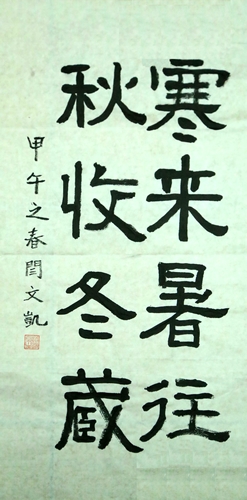 寒来暑往
秋收冬蔵
甲午之春闫文凯